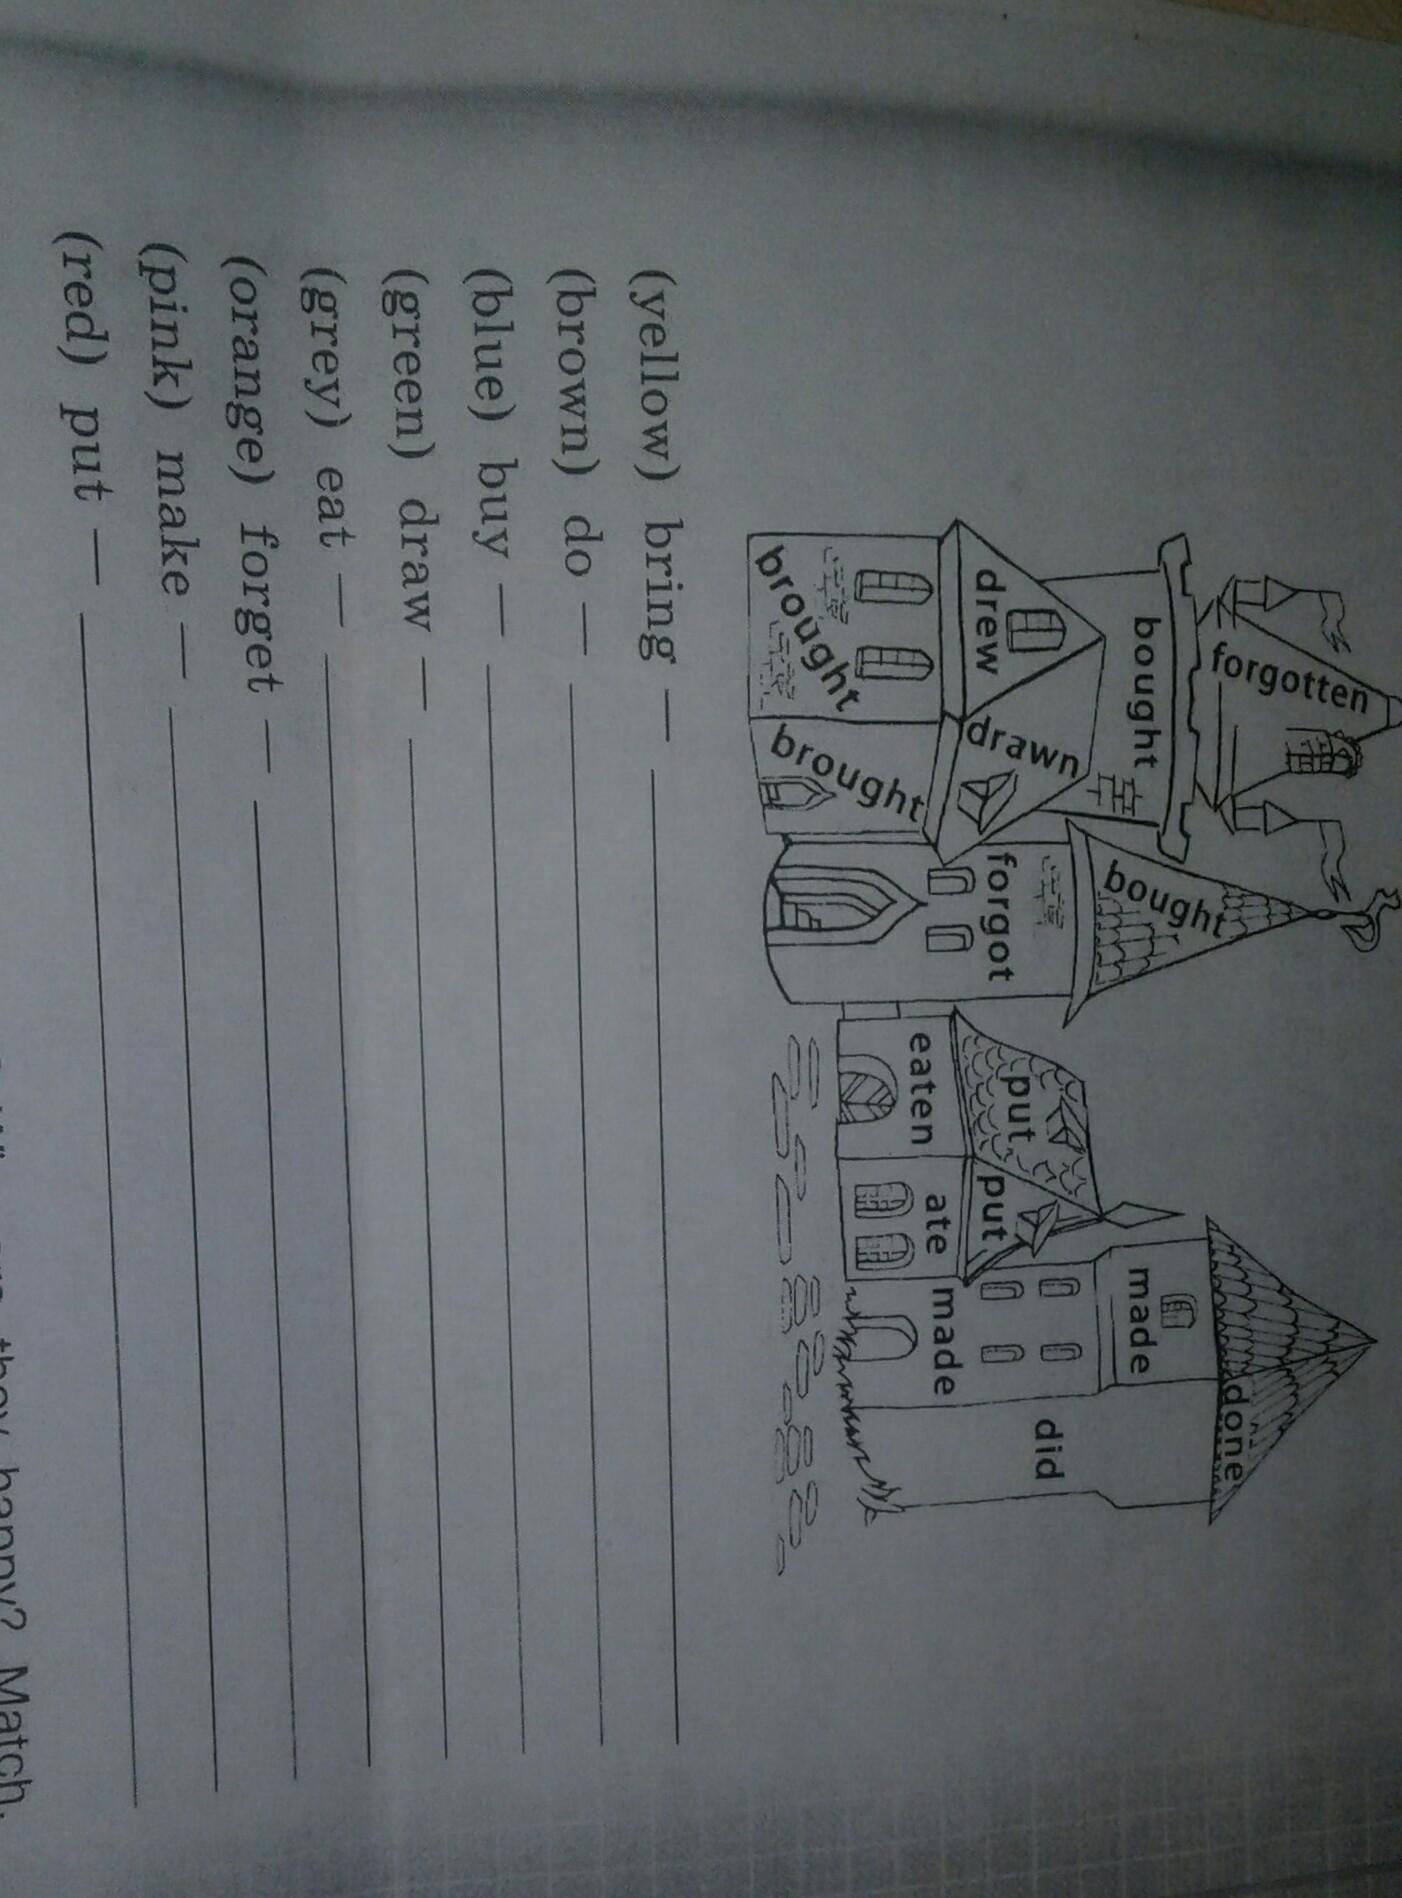 forgotten
bought
bought
done
drew
drawn
put
put
made
forgot
did
brought
brought
eaten
ate
made
(yellow) bring —
(brown) do —
(blue) buy —
(green) draw —
(grey) eat —
(orange) forget —
(pink) make —
(red) put —
they happy? Match.